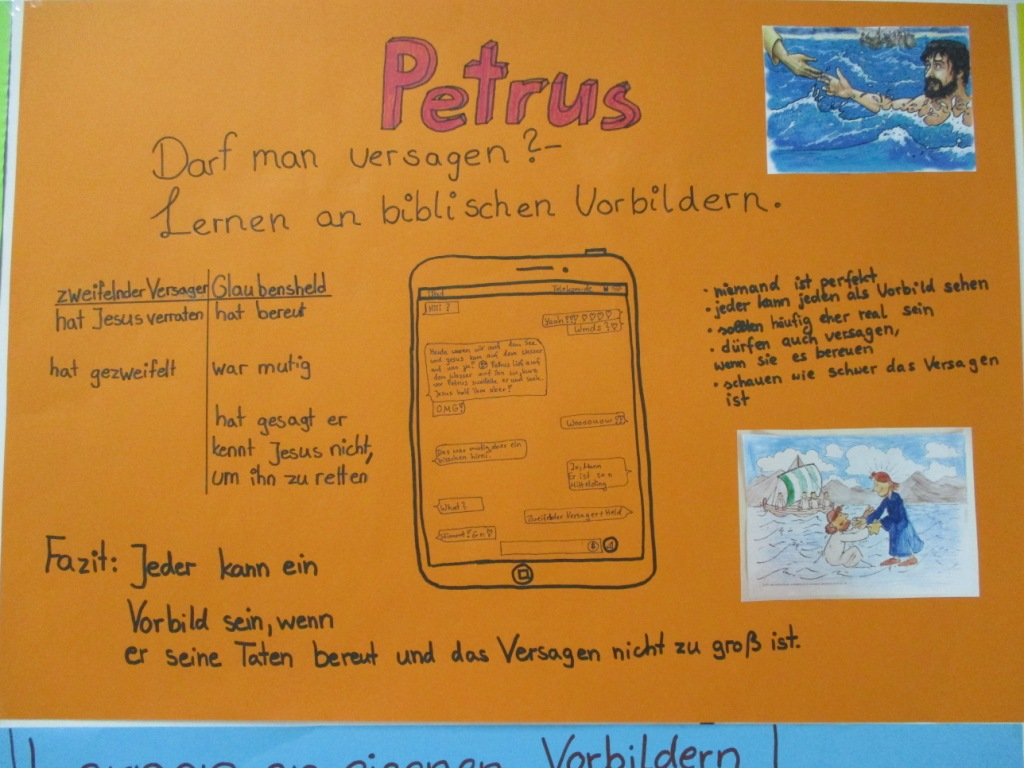 Petrus
Darf man versagen?-
Lernen an biblischen Vorbildern.
zweifelnder Versager
hat Jesus verraten
hat gezweifelt
Glaubensheld
hat bereut
war mutig
hat gesagt er
kennt Jesus nicht,
um ihn zu retten
Hi!?
Yeah!!
Wmds?
Heute waren wir auf dem See
und Jesus kam auf dem Wasser
auf uns zu! Petrus lief auf
dem Wasser auf ihn zu,
Petrus zweifelte er und sank.
Jesus half ihm aber!
OMG!
Woooouow!!
Das war mutig aber ein
bisschen
Ja, Mann
Er ist so'n
Mittelding
What?
Zweifelnder Versager+Held
Stimmt!
• niemand ist perfekt
• jeder kann jeden als Vorbild sehen
• sollten häufig eher real sein
• dürfen auch versagen,
wenn sie es bereuen
• schauen wie schwer das Versagen
ist
Fazit: Jeder kann ein
Vorbild sein, wenn
er seine Taten bereut und das Versagen nicht zu groß ist.
an eigenen Vorbildern